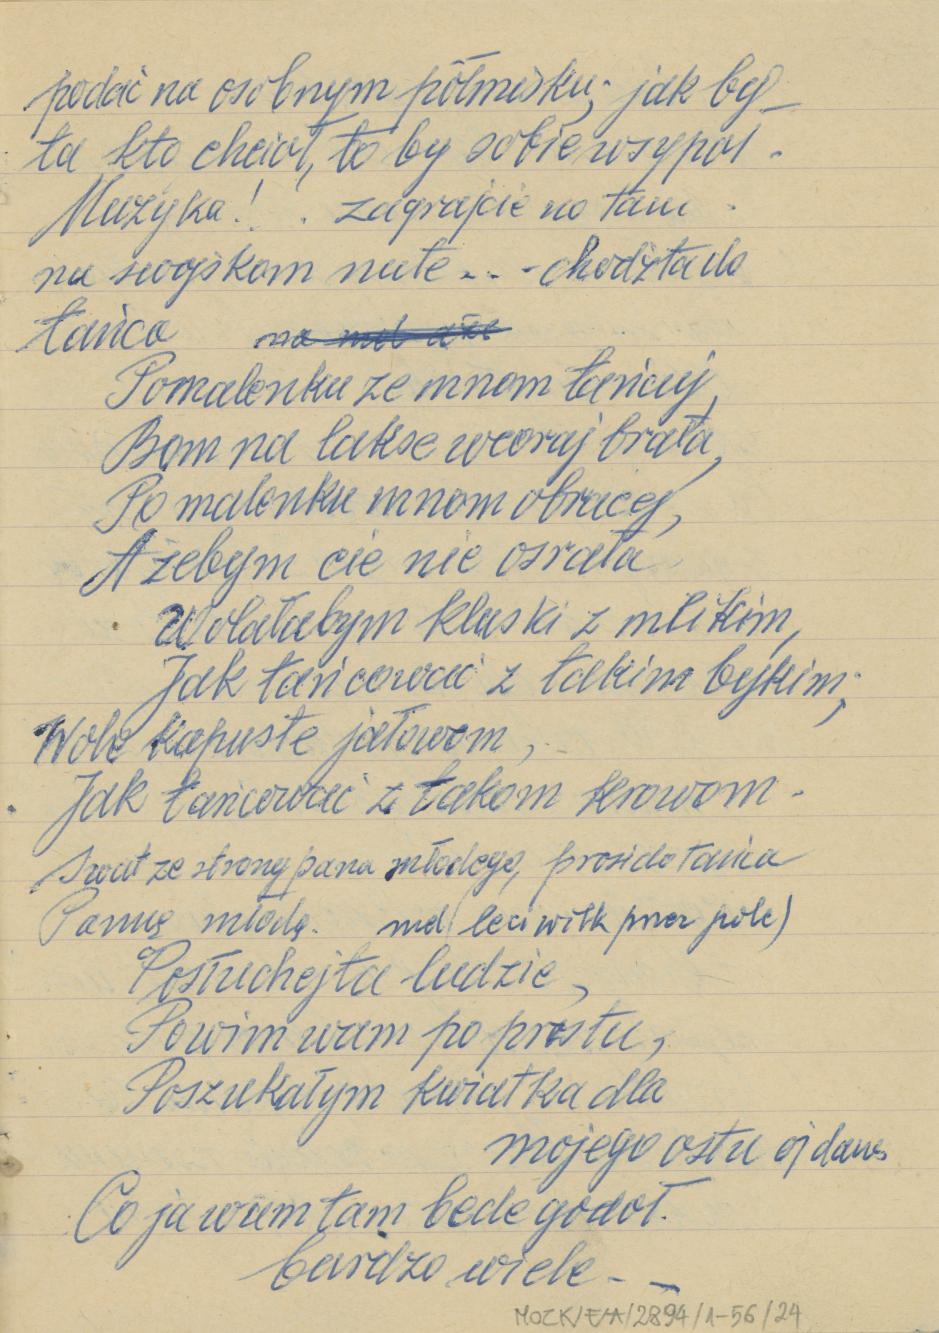 podać na osobnym półmisku; jak by_
ta kto chcioł, to by sobie wsypoł.
Muzyka! . zagrajcie no tam .
na swojskom nute... - chodźta do
tańca
Pomalenku ze mnom tańcuj,
Bom na lakse wcoraj brała,
Po malenku mnom obracej,
A żebym cie nie osrała
Wolałabym kluski z mlikim,
Jak tańcować z takim bykim;
Wole kapuste jałowom,
Jak tańcować z takom krowom.
Swat ze strony pana młodego, prosi do tańca
Pannę młodą. mel (leci wilk przez pole)
Posłuchejta ludzie,
Powim wam po prostu,
Poszukałym kwiatka dla
mojego ostu oj dana
Co ja wam tam bede godoł.
bardzo wiele - _
MOZK/E/A/2894/1-56/24